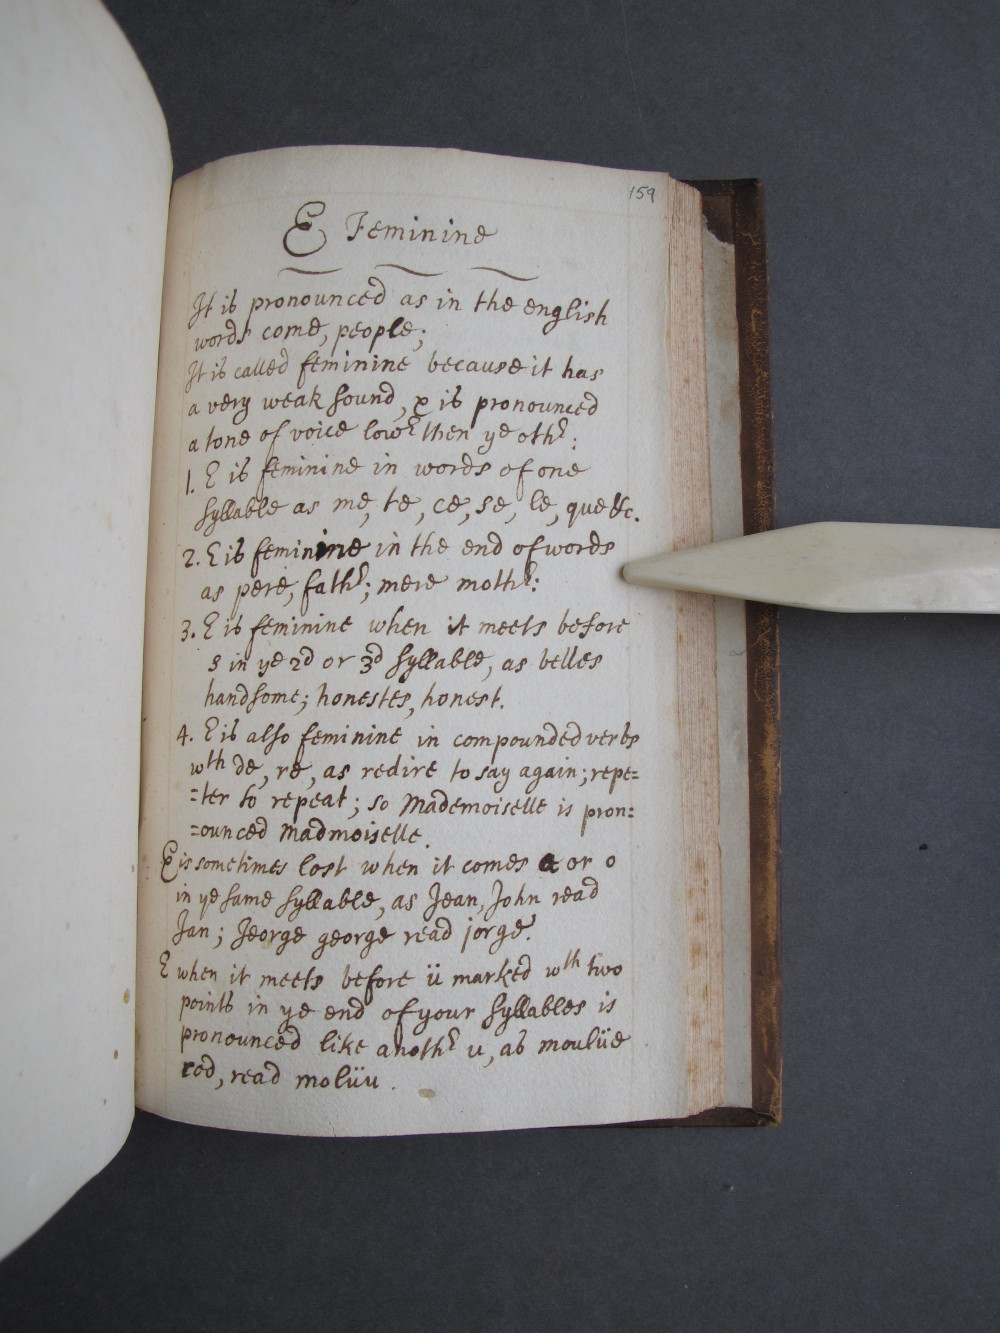 159
E Feminine
It is pronounced as in the english
words come, people;
It is called feminine because it has
a very weak sound, & is pronounced
a tone of voice lowr then ye othr:
1. E is feminine in words of one
syllable as me, te, ce, se, le, que &c.
2. E is feminine in the end of words
as pere, fathr; mere mothr:
3. E is feminine when it meets before
s in ye 2d or 3d syllable, as belles
handsome; honestes, honest.
4. E is also feminine in compounded verbs
wth de, re, as redire to say again; repe=
=ter to repeat; so Mademoiselle is pron=
=ounced Madmoiselle.
E is sometimes lost when it comes a or o
in ye same syllable, as Jean, John read
Jan; Jeorge george read jorge.
E when it meets before ü marked wth two
points in ye end of your syllables is
pronounced like anothr u, as moulüe
red, read molüu.